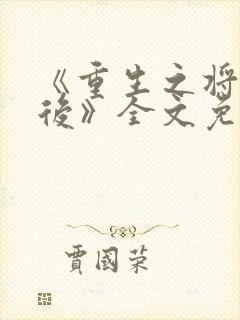 《重生之将
後》全文免
賈國荣